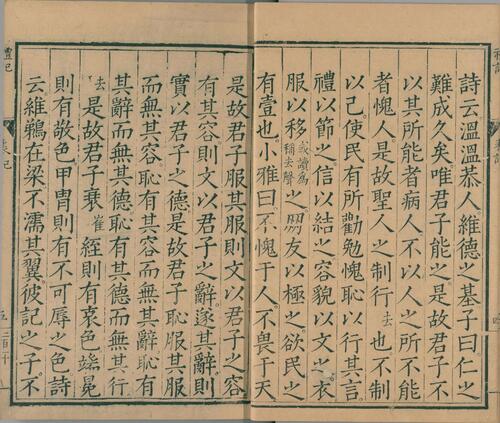 詩云溫溫恭人維德之基子曰仁之
難成久矣唯君子能之是故君子不
以其所能者病人不以人之所不能
者愧人是故聖人之制行去也不制
以己使民有所勸勉愧恥以行其言
禮以節之信以結之容貌以文之衣
服以移或讀爲稱去聲之朋友以極之欲民之
有壹也小雅曰不愧于人不畏于天
是故君子服其服則文以君子之容
有其容則文以君子之辭遂其辭則
實以君子之德是故君子恥服其服
而無其容恥有其容而無其辭恥有
其辭而無其德恥有其德而無其行
去是故君子衰崔絰則有哀色端冕
則有敬色甲冑則有不可辱之色詩
云維鵜在梁不濡其翼彼記之子不
禮記
表記
五